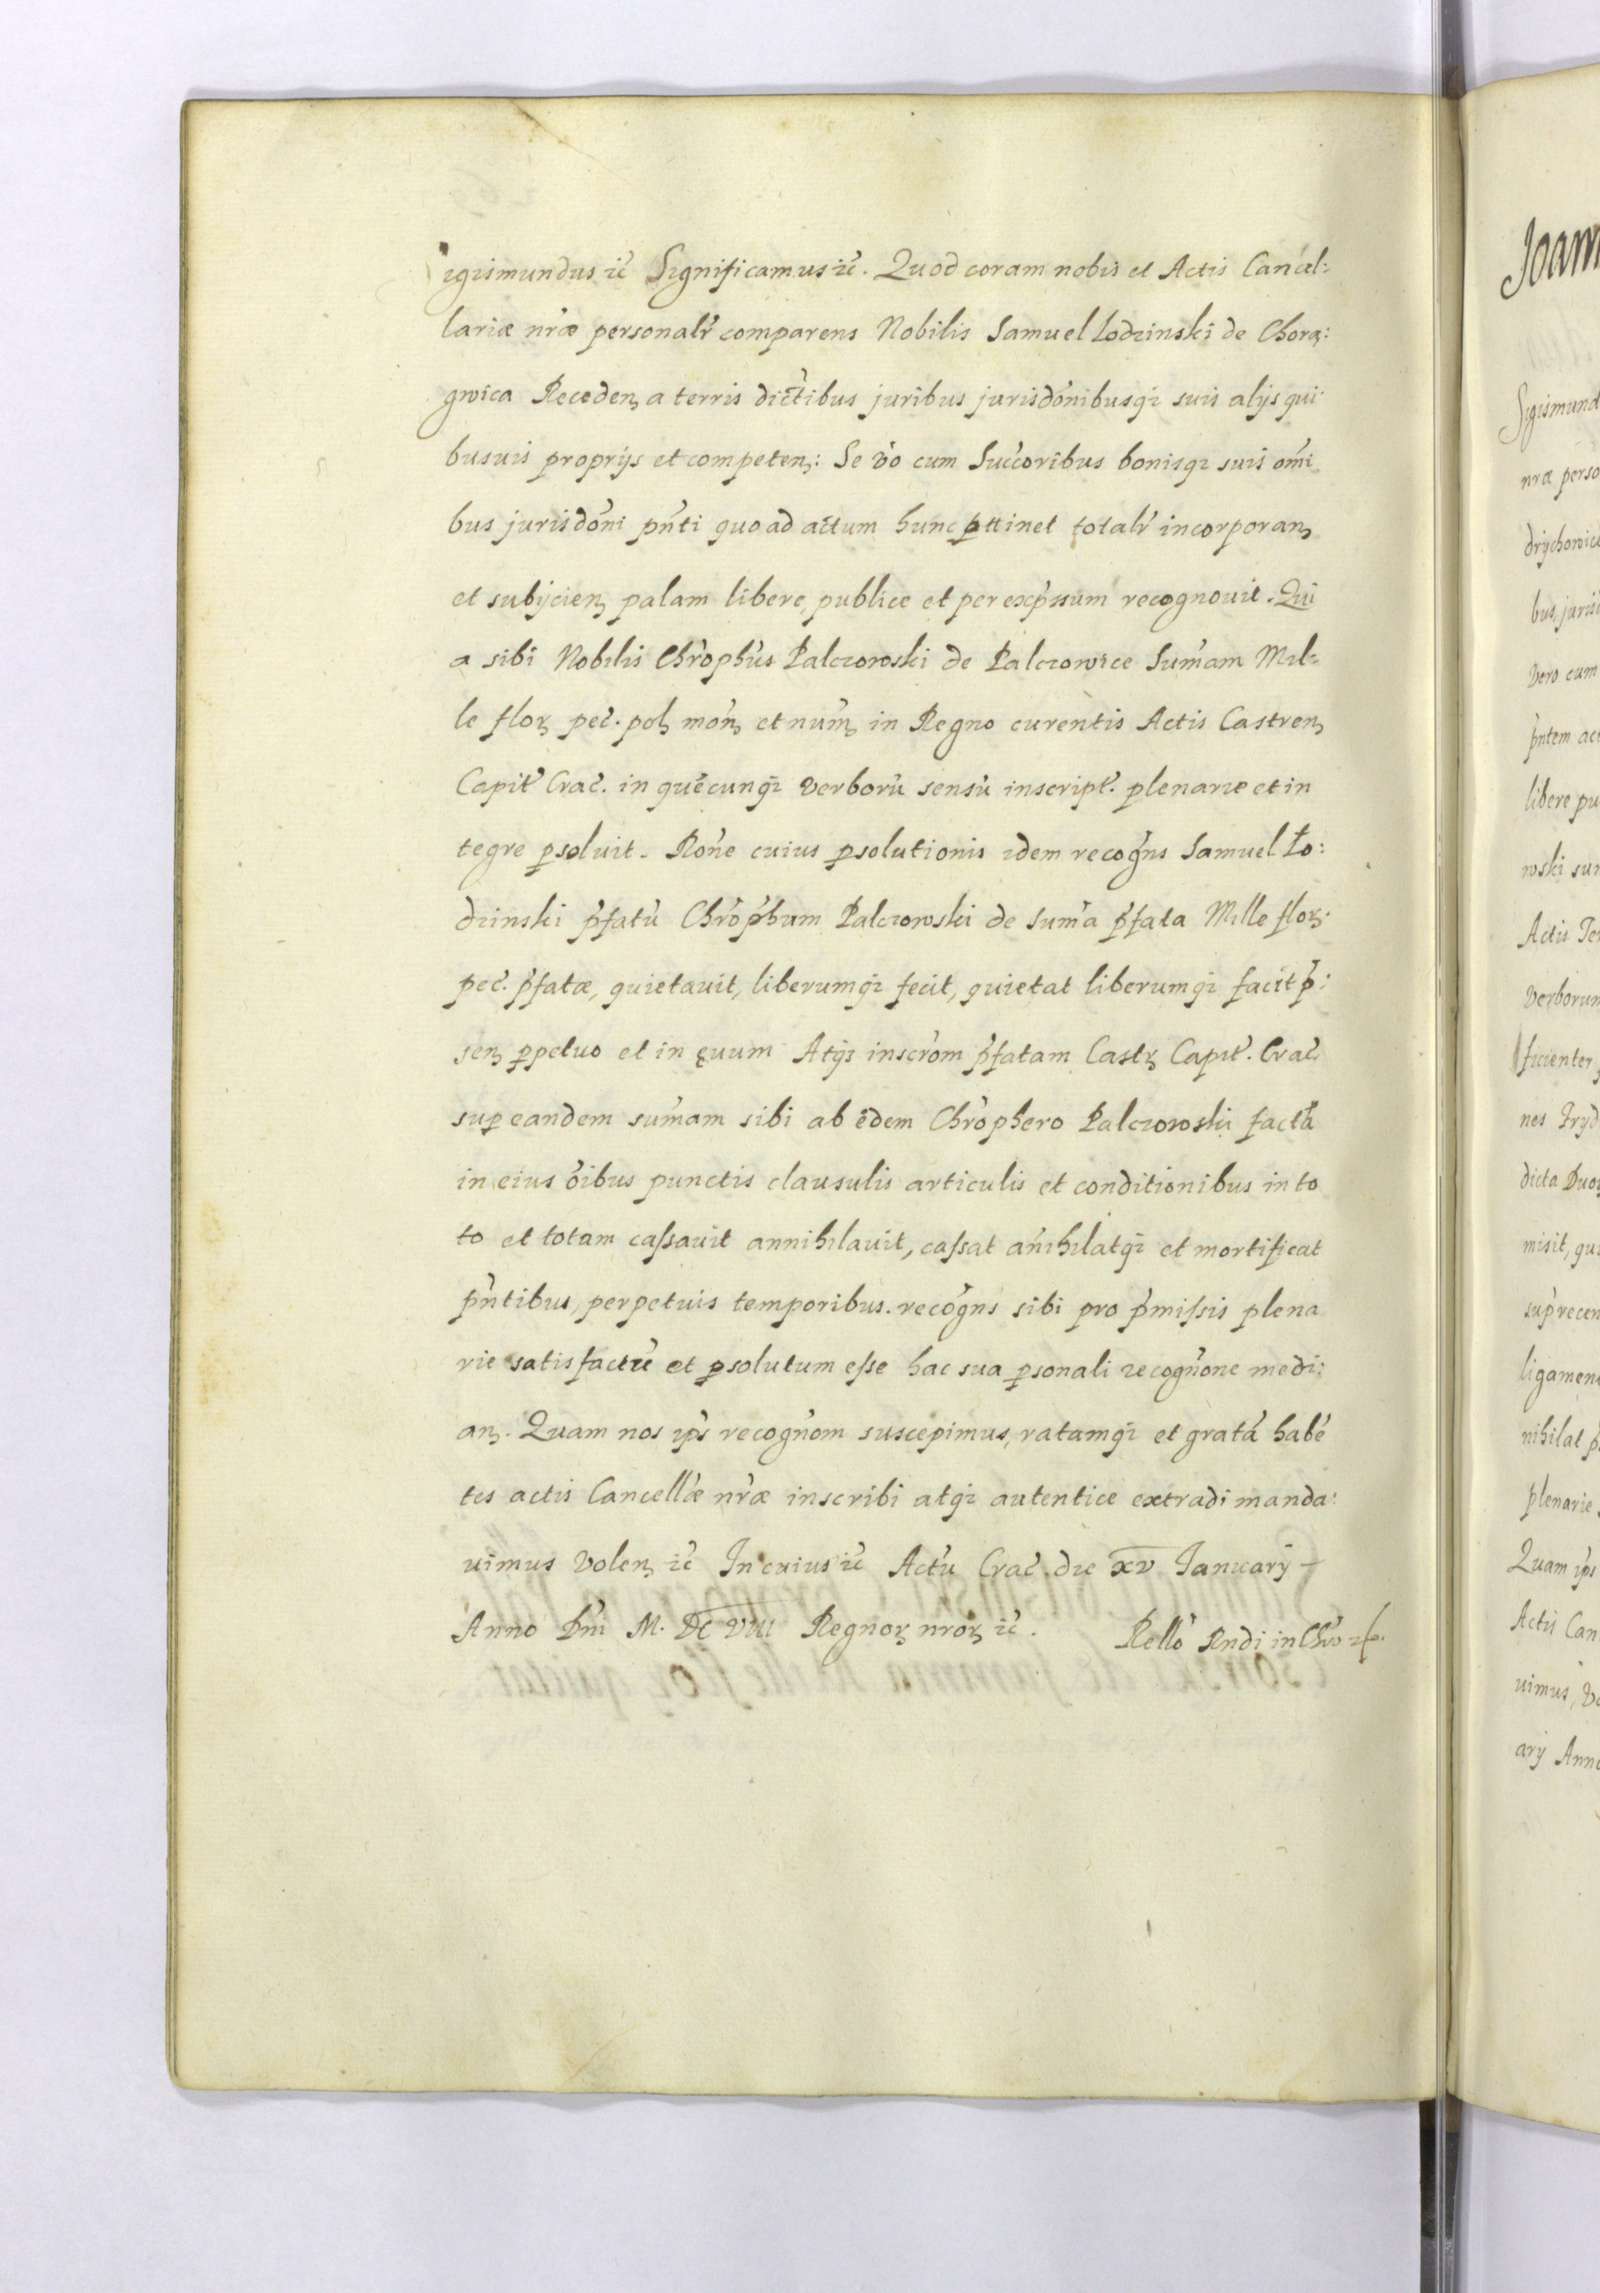 Sigismundus ꝛc̃ Significamus ꝛc̃. Quod coram nobis et Actis Cancel:
lariæ nr̃æ personalr̃ comparens Nobilis Samuel Lodzinski de Chorą:
gwica Recedeñ a terris dictibus juribus jurisdõnibusqꝫ suis alijs qui
busuis proprijs et competeñ: Se v̉o cum Succ̃oribus bonisqꝫ suis om̃i
bus jurisdõni pñti quo ad actum hunc ꝑttinet totalr̃ incorporañ
et subijcieñ palam libere, publice et per exp̃ssum recognouit. Qui
a sibi Nobilis Chr̃ophũs Palczowski de Palczowice Sum̃am Mil:
le floꝝ pec̃. poł moñ et num̃ in Regno curentis Actis Castreñ
Capit̃ Crac̃. in quẽcunqꝫ verborũ sensũ inscript̃. plenarie et in
tegre ꝑsoluit. Rõne cuius ꝑsolutionis idem recogñs Samuel Ło:
dzinski p̃fatũ Chr̃op̃hum Palczowski de Sum̃a p̃fata Mille floꝝ.
pec̃. p̃fatæ, quietauit, liberumqꝫ fecit, quietat liberumqꝫ facit p̃:
señ ꝑpetuo et in ęuum Atqꝫ inscr̃om p̃fatam Castꝝ Capit̃. Crac̃.
suꝑ eandem sum̃am sibi ab ẽdem Chr̃ophero Palczowski factã
in eius õibus punctis clausulis articulis et conditionibus in to
to et totam caſsauit annihilauit, caſsat añihilatqꝫ et mortificat
pñtibus, perpetuis temporibus. recogñs sibi pro p̃miſsis plena
rie satisfactũ et ꝑsolutum eſse hac sua ꝑsonali recogñone medi:
añ. Quam nos ip̃s recogñom suscepimus, ratamqꝫ et gratã habẽ
tes actis Cancellãe nr̃æ inscribi atqꝫ autentice extradi manda:
uimus Voleñ ꝛc̃ In cuius ꝛc̃ Actũ Crac̃. die XV Januarij
Anno Dñi M. DC VIII Regnoꝝ nr̃oꝝ ꝛc̃. Rellõ Rndi in Chr̃o
Joann
Sigismund
nræ perso
drychowice
bus, juris
Vero cum
p̃ntem act
libere pu
wski sum
Actis Ter
Verborum
ficienter
nes Fryd
dicta Duo
misit, qui
sup̃ recen
ligamen
nihilat p̃
plenarie
Quam ip̃s
Actis Can
uimus, Vo
arij Anno